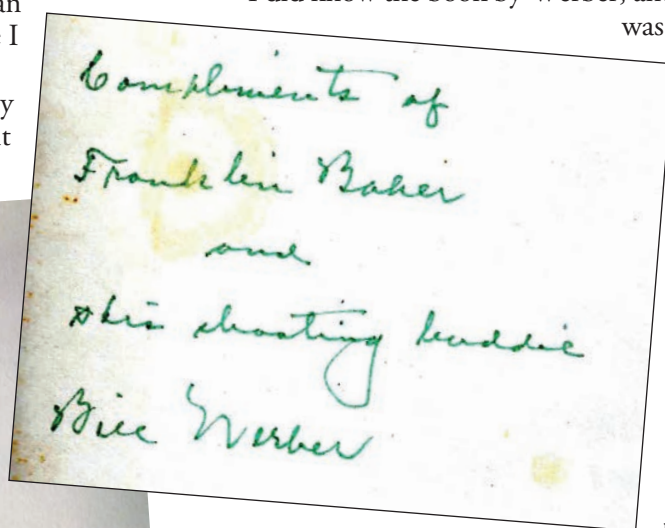 an
I
was
y
t
Compliments of
Franklin Baker
and
his shooting buddie
Bill Werber